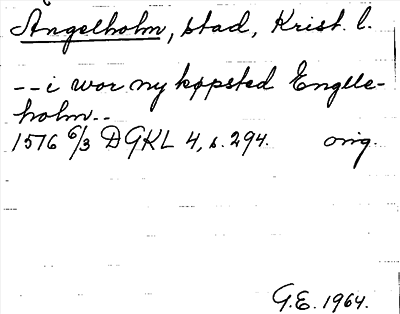 Ängelholm, stad, Krist. l.
--i wor ny køpsted Englle-
holm--
1576 6/3 DGKL 4, s. 294. orig.
G.E. 1964.